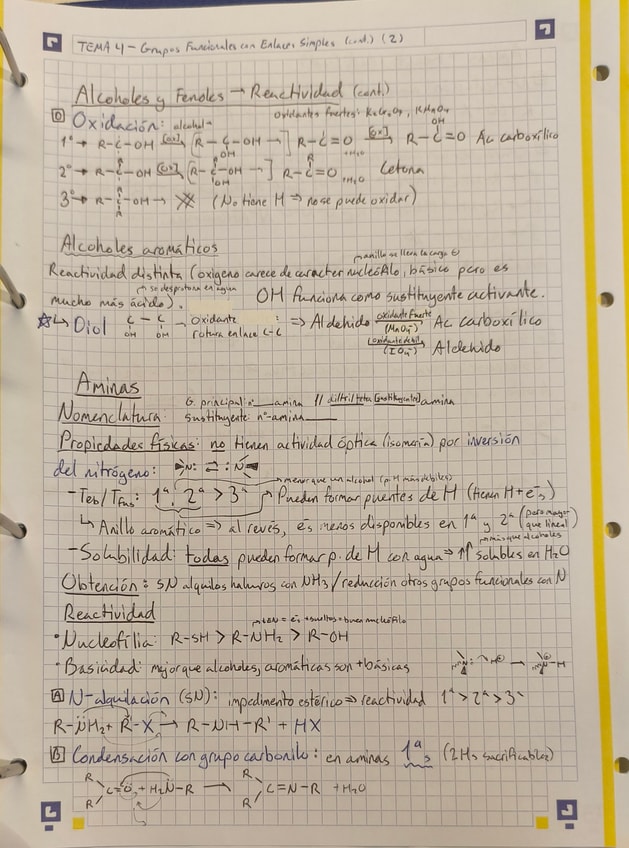 TEMA 4 - Grupos Funcionales con Enlaces Simples (cont.) (2)
Alcoholes y Fenoles → Reactividad (cont.)
D Oxidación: alcohol → oxidantes fuertes: K₂Cr₂O₇, KMnO₄
1º → R-C-OH [Ox]→ [R-C-OH →] R-C=O [Ox]→ R-C=O Ac carboxílico
OH +H₂O OH
2º → R-C-OH [Ox]→ [R-C-OH →] R-C=O +H₂O Cetona
R R OH R
3º → R-C-OH → (No tiene H ⇒ no se puede oxidar)
R R
Alcoholes aromáticos
→ anillo se lleva la carga ⊖
Reactividad distinta (oxigeno carece de caracter nucleófilo, básico pero es
→ se desprotona en agua
mucho más ácido). OH funciona como sustituyente activante.
☆↳ Diol C - C → Oxidante : ⇒ Aldehido oxidante fuerte (MnO₄⁻) Ac carboxílico
OH OH rotura enlace C-C oxidante débil (IO₄⁻) Aldehido
Aminas
Nomenclatura: G. principal: nº- ___ amina // di/tri/tetra [sustituyentes] amina
sustituyente: nº-amina ___
Propirdades físicas: no tienen actividad óptica (isomería) por inversión
del nitrógeno: N: ⇌ :N
→ menor que un alcohol (p. H más débiles)
- Teb/Tfus: 1ª, 2ª > 3ª → Pueden formar puentes de H (tienen H + e⁻s)
↳ Anillo aromático ⇒ al revés, e⁻s menos disponibles en 1ª y 2ª (pero mayor que lineal)
→ más que alcoholes
- Solubilidad: todas pueden formar p. de H con agua ⇒ ↑↑ solubles en H₂O
Obtención: SN alquilos haluros con NH₃ / reducción otros grupos funcionales con N
Reactividad
= e⁻s + sueltos = buen nucleófilo
· Nucleofília: R-SH > R-NH₂ > R-OH
· Basicidad: mejor que alcoholes, aromáticas son + básicas -N: H⊕ → -N-H
A N-alquilación (SN): impedimento estérico ⇒ reactividad 1ª > 2ª > 3ª
R-NH₂ + R'-X → R-NH-R' + HX
B Condensación con grupo carbonilo: en aminas 1ªs (2Hs sacrificables)
R R
C=O + H₂N-R → C=N-R + H₂O
R R